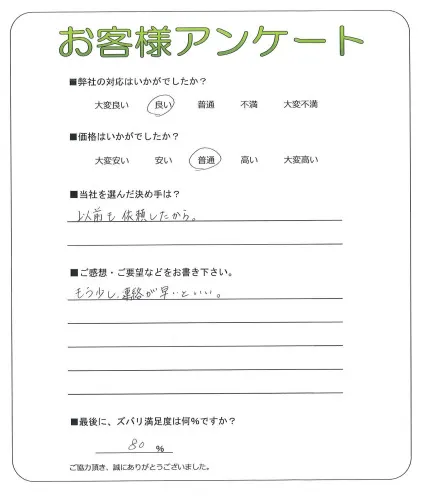 お客様アンケート
■弊社の対応はいかがでしたか？
大変良い 良い 普通 不満 大変不満
■価格はいかがでしたか？
大変安い 安い 普通 高い 大変高い
■当社を選んだ決め手は？
以前も依頼したから。
■ご感想・ご要望などをお書き下さい。
もう少し、連絡が早いといい。
■最後に、ズバリ満足度は何％ですか？
80 ％
ご協力頂き、誠にありがとうございました。